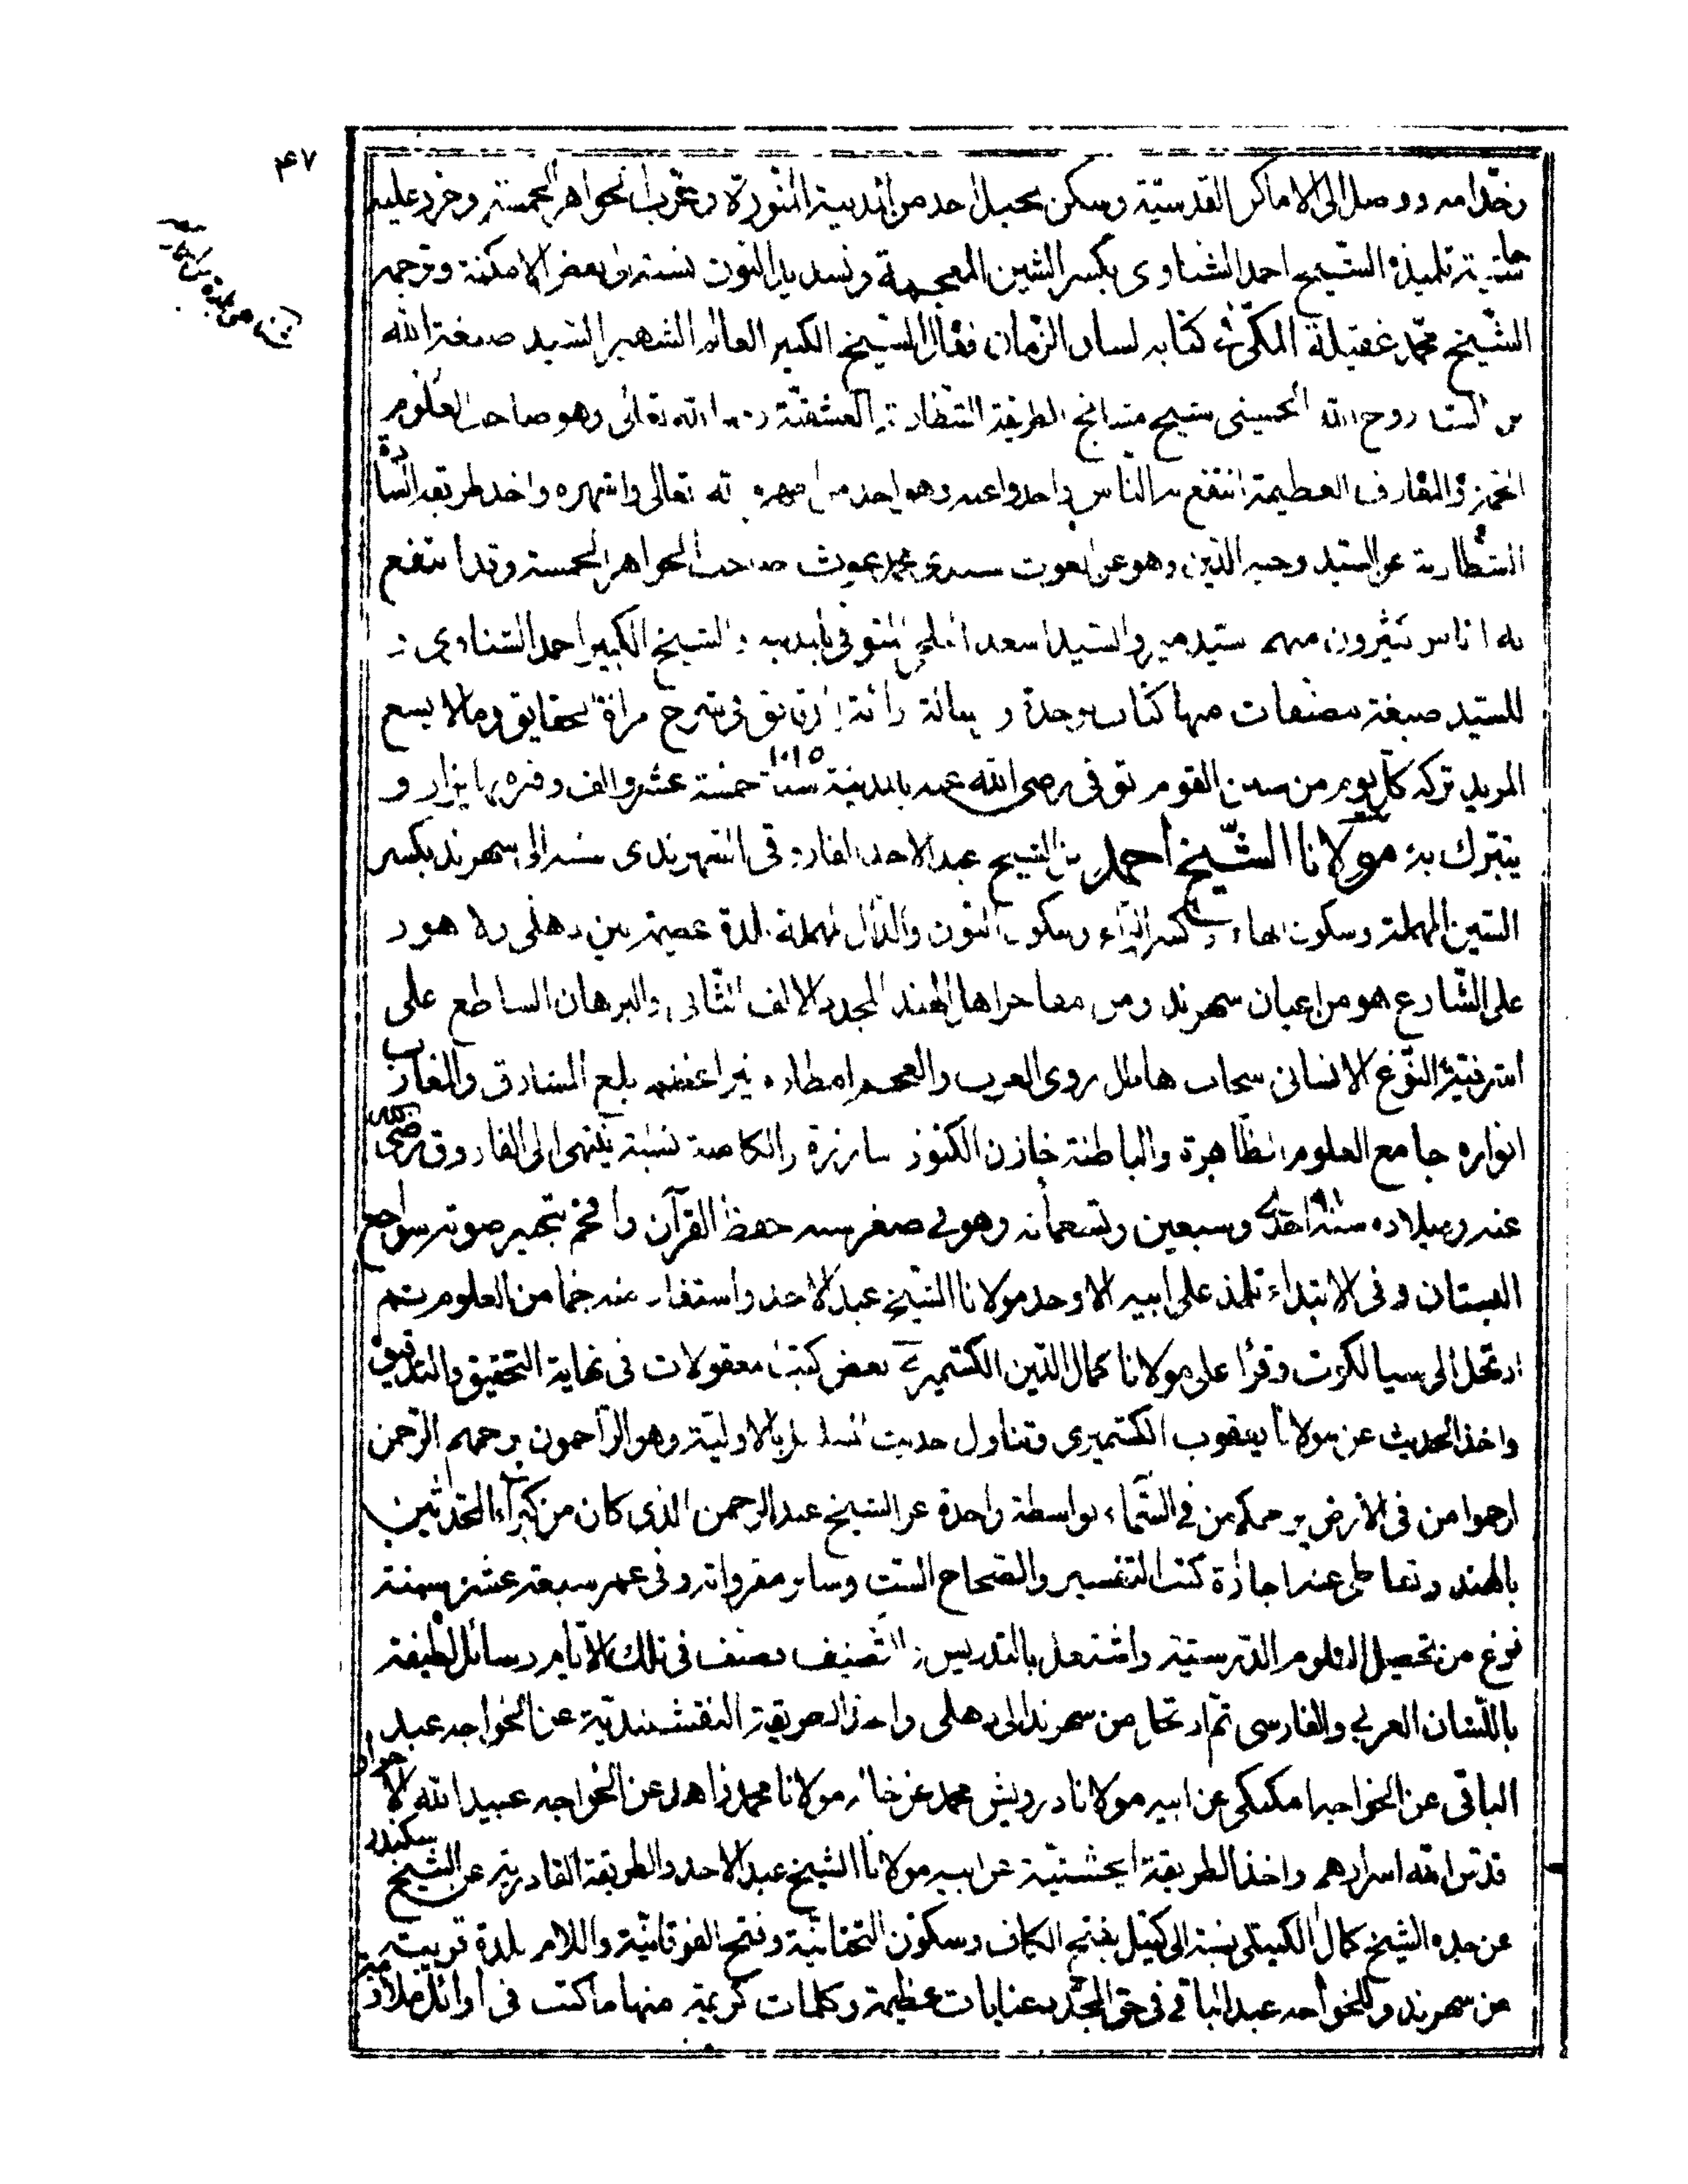 ۴۷
وخدامه ووصل الى الاماكن القدسية وسكن بجبل احد من المدينة المنورة وعرب الجواهر الخمسة وحرر عليه
حاشية تلميذه الشيخ احمد الشناوى بكسر الشين المعجمة وتشديد النون نسبة الى بعض الامكنة وترجمه
الشيخ محمد عقيلة المكى فى كتابه لسان الزمان فقال الشيخ الكبير العالم الشهير السيد صبغة الله
بن السيد روح الله الحسينى شيخ مشائخ الطريقة الشطارية العشقية رحمه الله تعالى وهو صاحب العلوم
والمعارف العظيمة انتفع به الناس واخذوا عنه وهو احد من الله تعالى واشهره واخذ طريقة السادة
الشطارية عن السيد وجيه الدين وهو عن الغوث سيدى محمد غوث صاحب الجواهر الخمسة وقد انتفع
به اناس كثيرون منهم سيد مير والسيد اسعد البلخى المتوفى بالمدينة والشيخ الكبير احمد الشناوى و
للسيد صبغة مصنفات منها كتاب الوحدة ورسالة اراءة الدقائق فى شرح مرآة الحقايق وما لا يسع
المريد تركه كل يوم من سنن القوم توفى رضى الله عنه بالمدينة سنة ١٠١٥ خمسة عشر والف وقبره بها يزار و
يتبرك به مولانا الشيخ احمد بن الشيخ عبد الاحد الفاروقى السهرندى نسبة الى سهرند بكسر
السين المهملة وسكون الهاء وكسر الراء وسكون النون والدال المهملة بلدة عظيمة بين دهلى ولاهور
على الشارع هو من اعيان سهرند ومن مفاخر اهل الهند المجدد للالف الثانى والبرهان الساطع على
اشرفية النوع الانسانى سحاب هاطل روى العرب والعجم امطاره نير اعظم بلغ المشارق والمغارب
انواره جامع العلوم الظاهرة والباطنة خازن الكنوز البارزة والكامنة نسبة ينتهى الى الفاروق رضى الله
عنه وميلاده سنة ٩٧١ احدى وسبعين وتسعمائة وهو فى صغر سنه حفظ القرآن وافحم بتحبير صوته سواجع
البستان وفى الابتداء تلمذ على ابيه الاوحد مولانا الشيخ عبد الاحد واستفاد منه جما من العلوم ثم
ارتحل الى سيالكوت وقرأ على مولانا كمال الدين الكشميرى بعض كتب معقولات فى نهاية التحقيق والتدقيق
واخذ الحديث عن مولانا يعقوب الكشميرى وتناول حديث المسلسل بالاولية وهو الراحمون يرحمهم الرحمن
ارحموا من فى الارض يرحمكم من فى السماء بواسطة واحدة عن الشيخ عبد الرحمن الذى كان من كبراء المحدثين
بالهند وتعاطى عنه اجازة كتب التفسير والصحاح الست وساير مقرواته وفى عمر سبعة عشر سنة
فرغ من تحصيل العلوم الدرسية واشتغل بالتدريس والتصنيف وصنف فى تلك الايام رسائل لطيفة
باللسان العربى والفارسى ثم ارتحل من سهرند الى دهلى واخذ الطريقة النقشبندية عن الخواجه عبد
الباقى عن الخواجه امكنكى عن ابيه مولانا درويش محمد عن خاله مولانا محمد زاهد عن الخواجه عبيد الله الاحرار
قدس الله اسرارهم واخذ الطريقة الچشتية عن ابيه مولانا الشيخ عبد الاحد والطريقة القادرية عن الشيخ سكندر
عن جده الشيخ كمال الكيتلى نسبة الى كيتل بفتح الكاف وسكون التحتانية وفتح الفوقانية واللام بلدة قريبة
من سهرند وللخواجه عبد الباقى فى حق المجدد عنايات عظيمة وكلمات كريمة منها ما كتب فى اوائل ملازمته